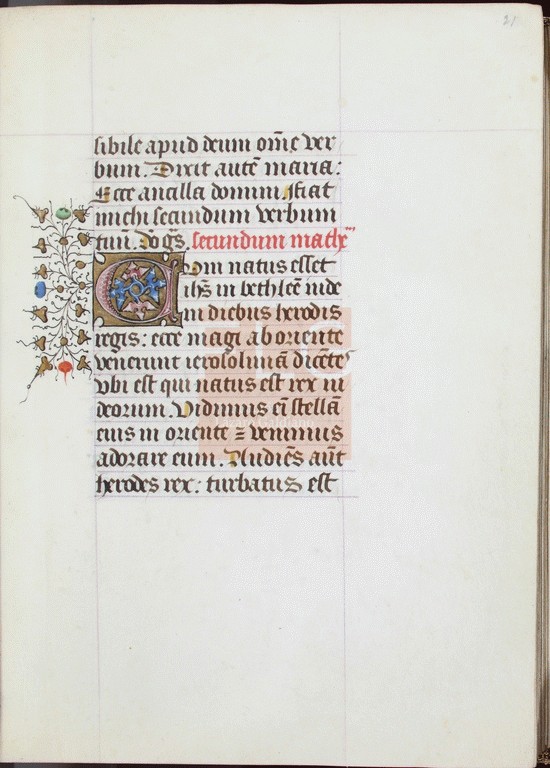 21
sibile apud deum om̅e ver
bum. Dixit aute̅ maria:
Ecce ancilla domini. fiat
michi secundum verbum
tuu̅. D̅o g̅s. secundum math
Cum natus esset
ih̅s in bethlee̅ iude
in diebus herodis
regis: ecce magi ab oriente
venerunt ierosolima̅ dice̅tes
vbi est qui natus est rex iu
deorum. Vidimus ei̅ stella̅
eius in oriente ⁊ venimus
adorare eum. Audie̅s au̅t
herodes rex: turbatus est